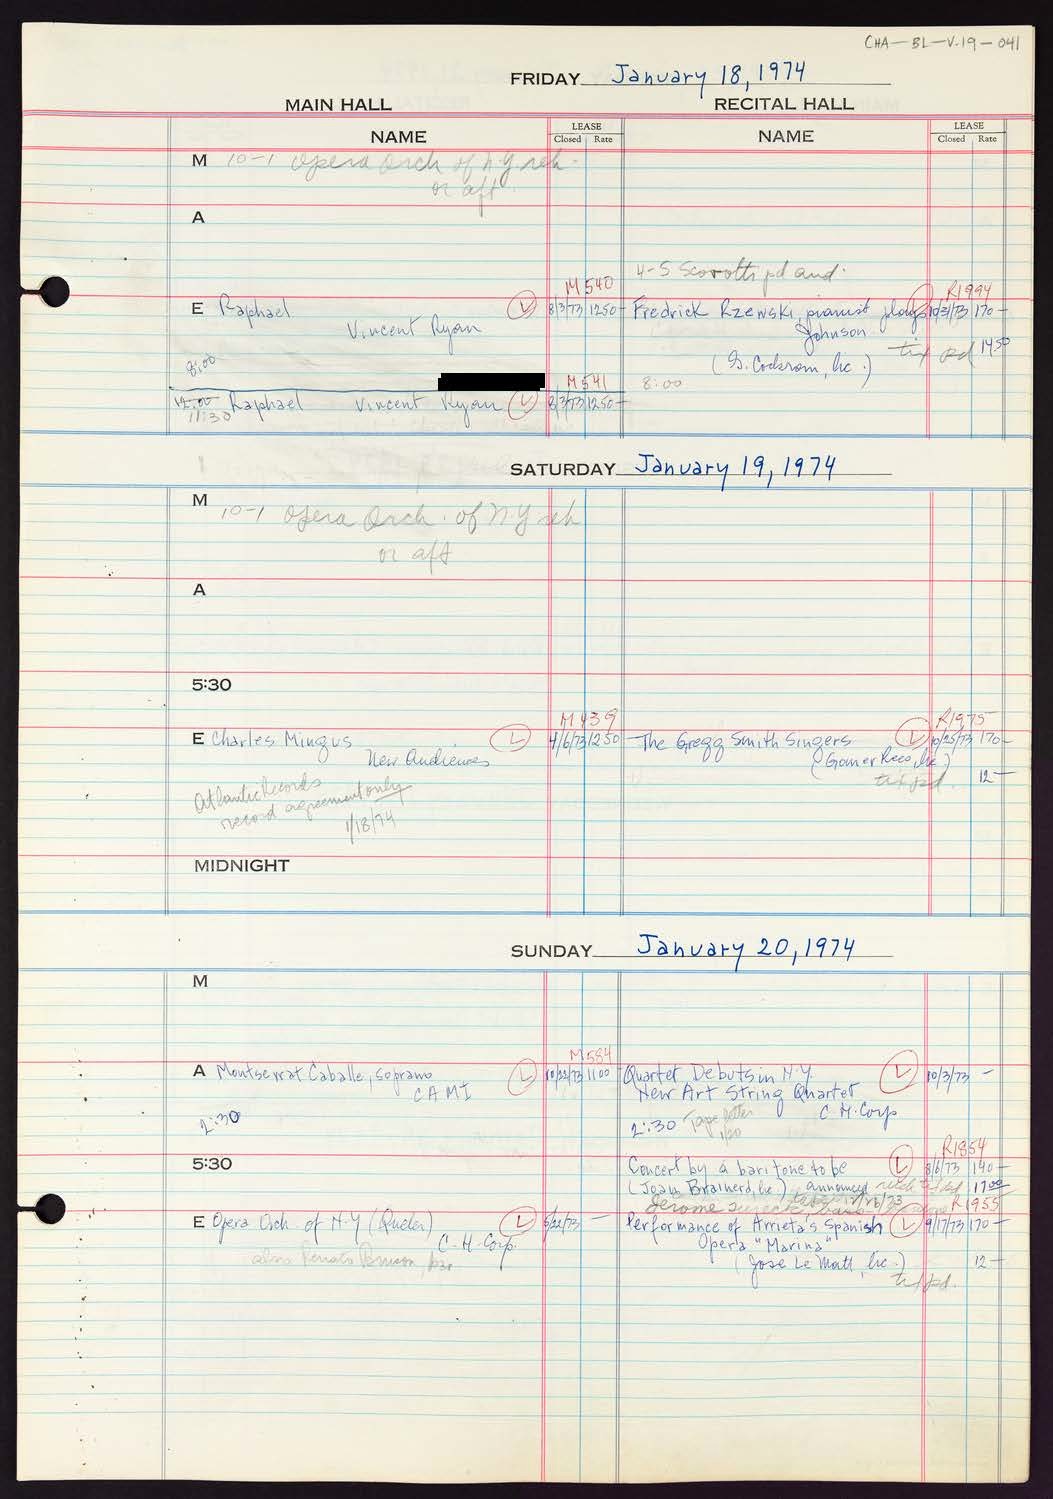 CHA-BL-V.19-041
FRIDAY January 18, 1974
MAIN HALL RECITAL HALL
NAME LEASE Closed Rate NAME LEASE Closed Rate
M 10-1 Opera Orch of N.Y reh.
or aft.
A
4-5 pd and.
M 540 R1994
E Raphael L 8/3/73 1250- Fredrick Rzewski, pianist plays 10/3/73 170-
Vincent Ryan Johnson tix pd 1450
8:00 (G. Cockrom, Inc.)
M 541 8:00
12:00 Raphael Vincent Ryan L 8/3/73 1250-
11:30
SATURDAY January 19, 1974
M 10-1 Opera Orch. of N Y reh
or aft
A
5:30
M 439 R1975
E Charles Mingus L 4/6/73 1250 The Gregg Smith Singers L 10/25/73 170-
New Audiences (Gomer Rees, Inc)
Atlantic Records tix pd. 12-
record agreement only
1/18/74
MIDNIGHT
SUNDAY January 20, 1974
M
M584
A Montserrat Caballe, soprano L 10/22/73 1100 Quartet Debuts in N.Y. L 10/3/73 -
CAMI New Art String Quartet
2:30 C.H. Corp
2:30 Tape letter
1/20
R1854
5:30 Concert by a baritone to be L 8/6/73 140-
(Joan Brainerd, Inc.) announced 1700
Jerome R1955
E Opera Orch. of N-Y (Queler) L 5/22/73 - Performance of Arrieta's Spanish L 9/17/73 170-
C-H-Corp. Opera "Marina"
also Renato Bruson, bar (Jose Le Matt, Inc.) 12-
tix pd.